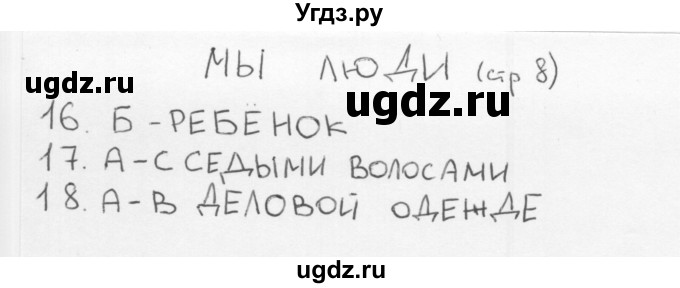 Угдз.ру
МЫ ЛЮДИ (стр 8)
ugdz.ru
ugdz.ru
16. Б - РЕБЁНОК
17. А - С СЕДЫМИ ВОЛОСАМИ
18. А - В ДЕЛОВОЙ ОДЕЖДЕ
ugdz.ru
ugdz.ru